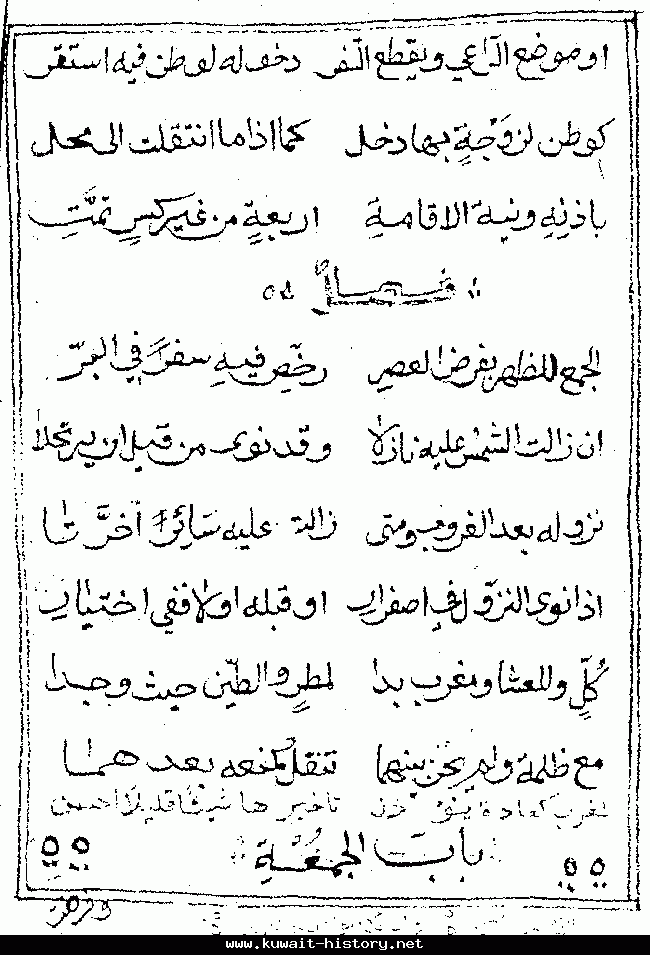 او موضع الراعي ويقطع السفر دخوله لوطن فيه استقر
كوطن لزوجةٍ بها دخل كما اذا ما انتقلت الى محل
باذنِهِ ونية الاقامةِ اربعةٍ من غير كسرٍ تمَّتِ
فصلٌ
الجمع للظهر بفرض العصرِ رخّص فيهِ سفرًا في البرّ
ان زالت الشمس عليه نازلا وقد نوى من قبل ان يرتحلا
نزوله بعد الغروب ومتى زالت عليه سَائِرًا أخَّرَ تا
اذا نوى النزول في اصفرارِ او قبله اولا ففي اختيارِ
كُلٍّ وللعشا ومغرب بدا لمطرٍ والطّين حيث وجدا
مع ظلمة ولم يجز بينهما تنفل كمنعه بعدهما
لمغرب كعادة تاخيرها شيئا قليلا
بابُ الجمُعَةِ
www.kuwait-history.net